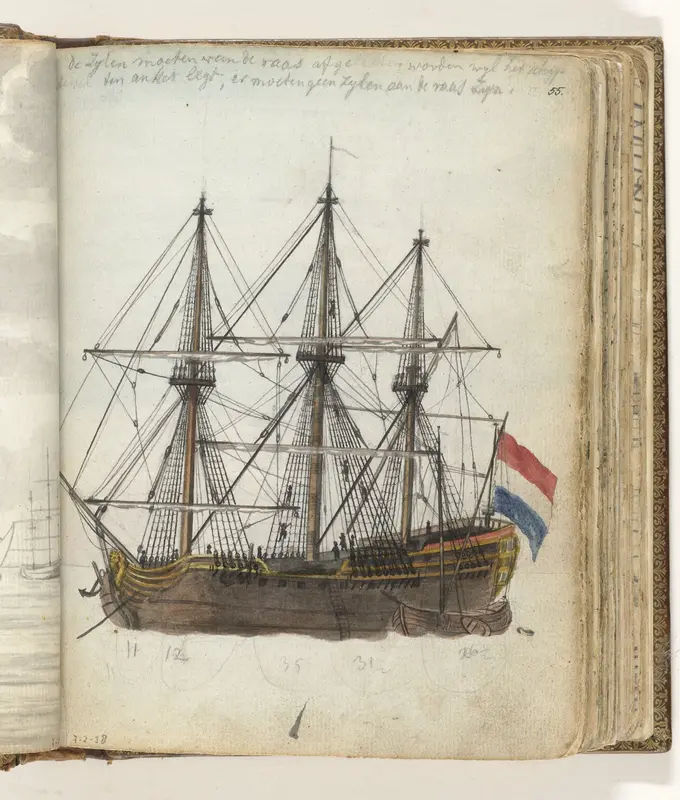 de Zylen moeten van de raas afge worden wyl het schip
ten anker legt, er moeten geen Zylen aan de raas Zyn.
55.
11 12 35 31
7-2-38